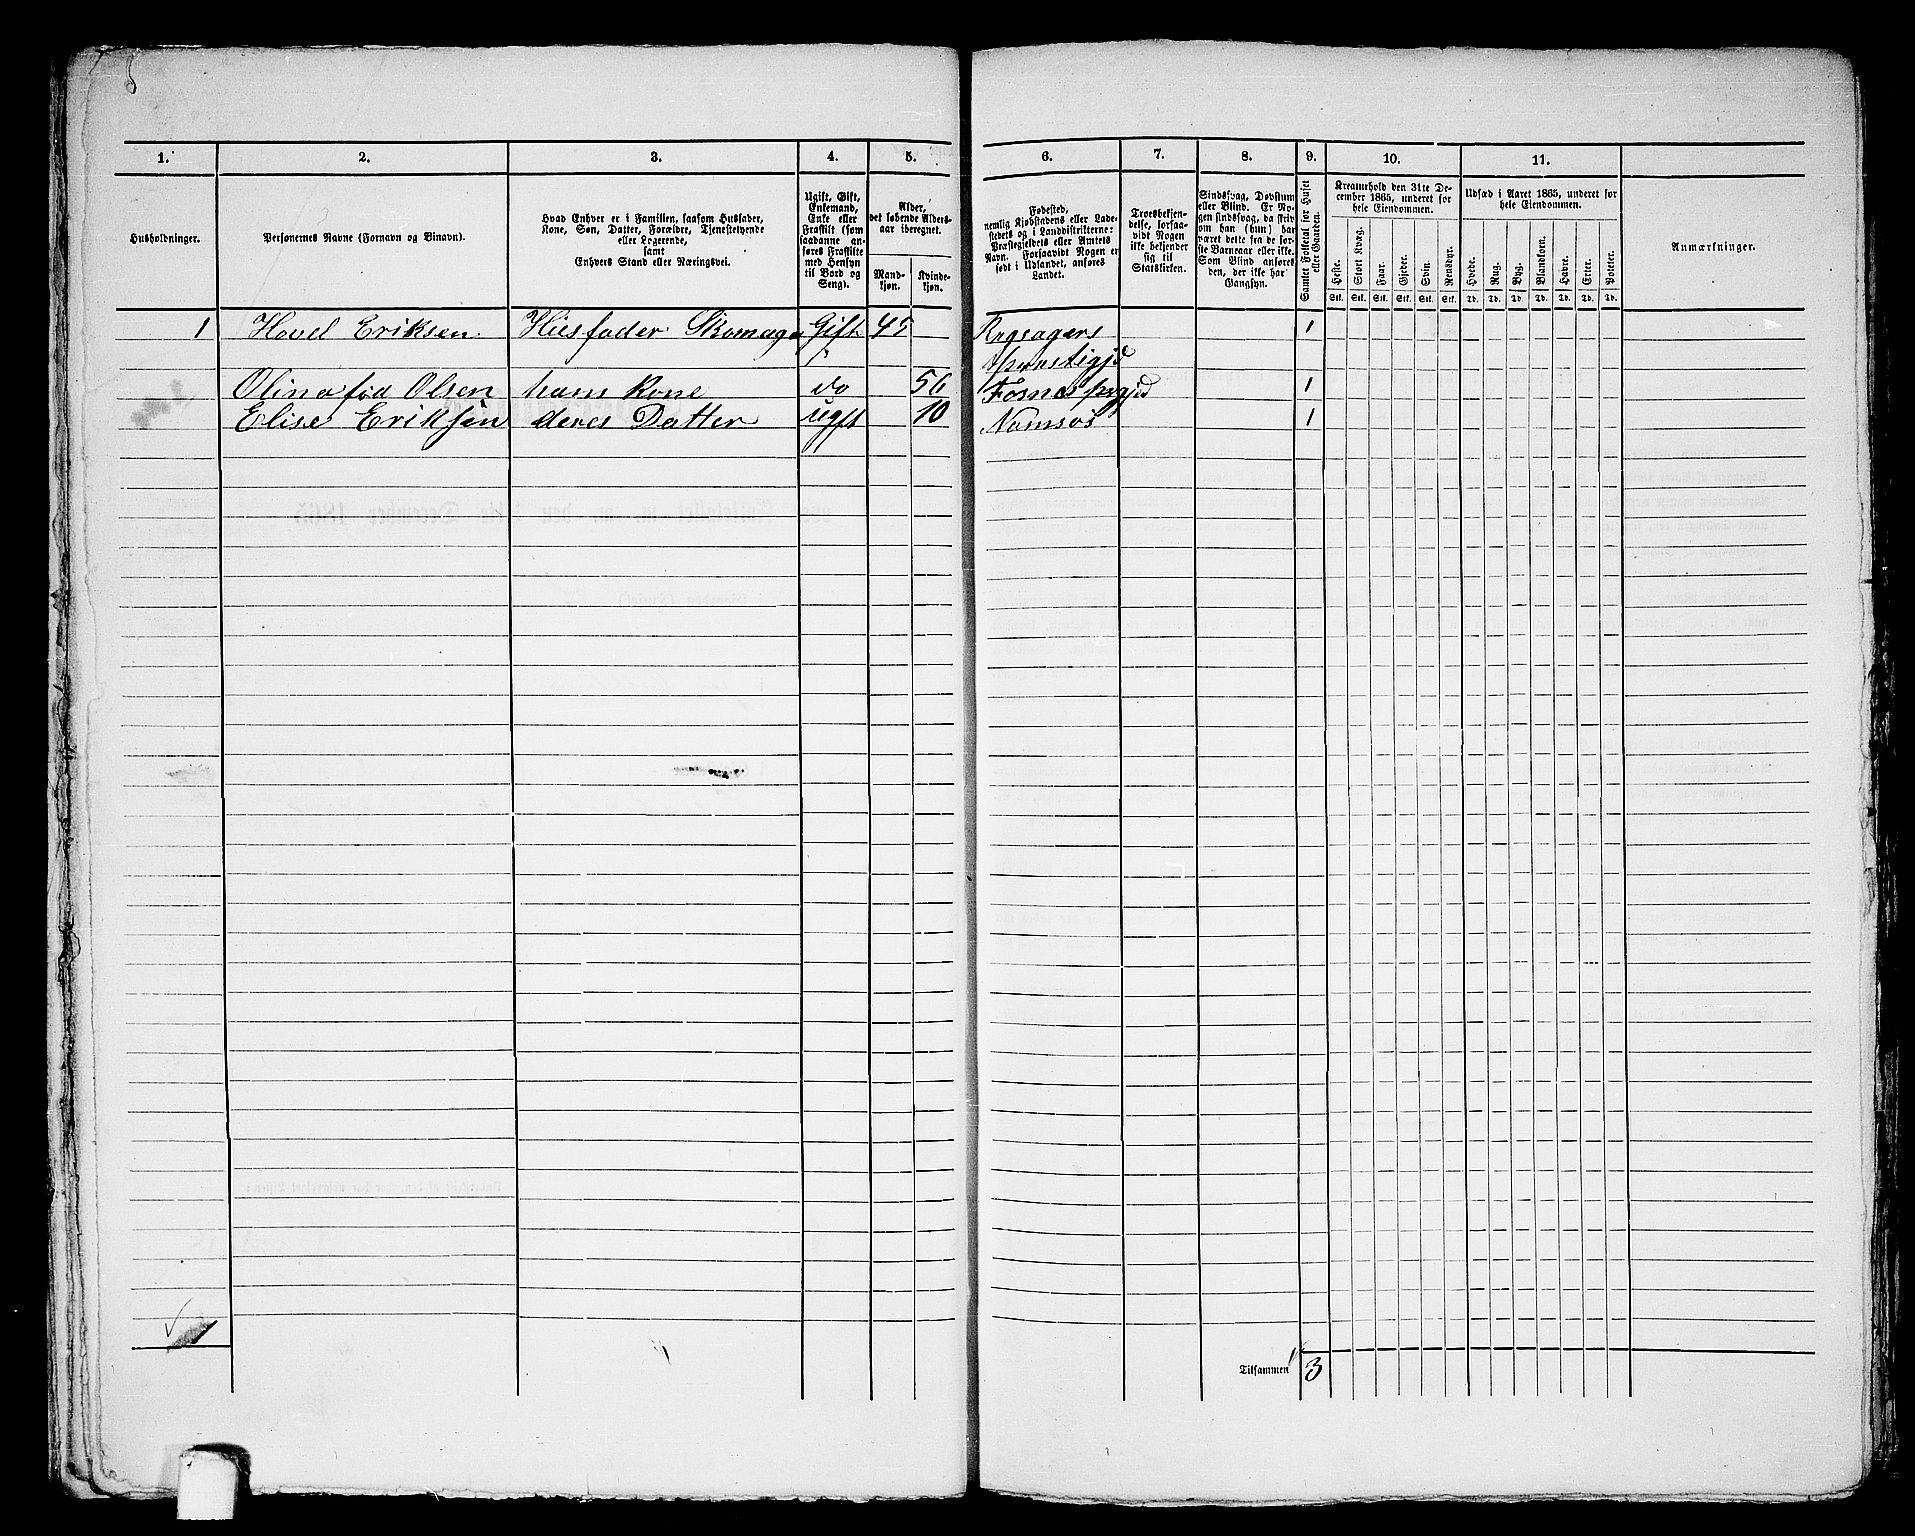 1. 2. 3. 4. 5. 6. 7. 8. 9. 10. 11.
Husholdninger.
Personernes Navne (Fornavn og Binavn).
Hvad Enhver er i Familien, saasom Husfader,
Kone, Søn, Datter, Forældre, Tjenestetyende
eller Logerende,
samt
Enhvers Stand eller Næringsvei.
Ugift, Gift,
Enkemand,
Enke eller
Fraskilt (som
saadanne an-
føres Fraskilte
med Hensyn
til Bord og
Seng).
Alder,
det løbende Alders-
aar iberegnet.
Mand-
kjøn.
Kvinde-
kjøn.
Fødested,
nemlig Kjøbstadens eller Lade-
stedets og i Landdistrikterne:
Præstegjeldets eller Amtets
Navn. Forsaavidt Nogen er
født i Udlandet, anføres
Landet.
Troesbekjen-
delse, forsaa-
vidt Nogen
ikke bekjender
sig til
Statskirken.
Sindssvag, Døvstum
eller Blind. Er No-
gen sindssvag, da skriv
om han (hun) har
været dette fra de før-
ste Barneaar eller ikke.
Som Blind anføres
den, der ikke har
Gangsyn.
Samlet Folketal for Huset
eller Gaarden.
Kreaturhold den 31te De-
cember 1865, underet for
hele Eiendommen.
Heste. Stort Kvæg. Faar. Gjeder. Svin. Rensdyr.
Stk. Stk. Stk. Stk. Stk. Stk.
Udsæd i Aaret 1865, underet for
hele Eiendommen.
Hvede. Rug. Byg. Blandkorn. Havre. Erter. Poteter.
Td. Td. Td. Td. Td. Td. Td.
Anmærkninger.
1 Hovel Eriksen Husfader Skomager Gift 45 1
Olina fød Olsen hans Kone do 56 Fosnes prgjd 1
Elise Eriksen deres Datter ugift 10 Namsos 1
Tilsammen 3